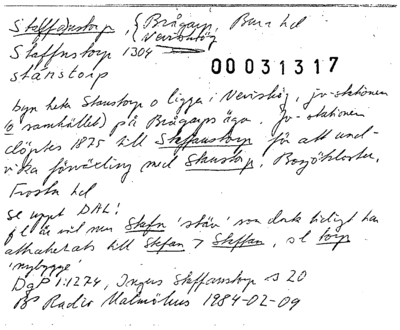 Staffanstorp, { Brågarp, Bara hd
Nevishög
Staffnstorp 1304
stánstorp
00031317
byn heter Stanstorp o ligger i Nevishög, jv-stationen
(o samhället) på Brågarps ägor. Jv-stationen
döptes 1875 till Staffanstorp för att und-
vika förväxling med Stanstorp, Borgs kloster,
Frosta hd
Se uppt DAL!
fl är väl mn Stafn 'stäv' som dock tidigt har
attraherats till Stefan > Staffan, sl torp
'nybygge'
DgP 1:1274, Ingers Staffanstorp s 20
Bs Radio Malmöhus 1984-02-09